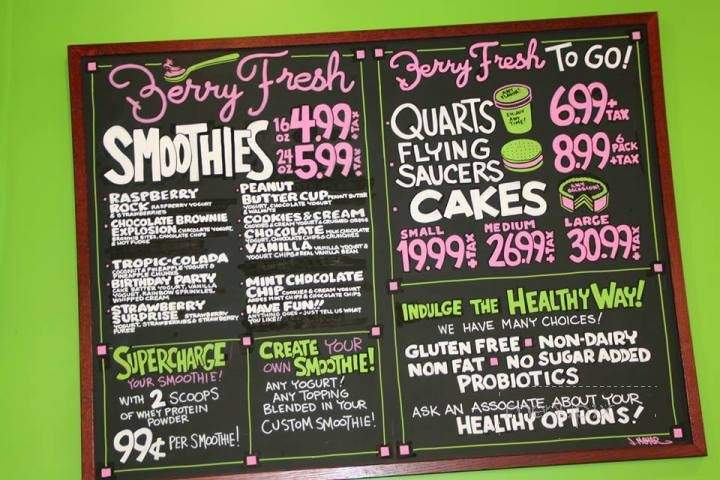 Berry Fresh
SMOOTHIES
16 OZ 4.99 +TAX
24 OZ 5.99 +TAX
RASPBERRY
ROCK RASPBERRY YOGURT
& STRAWBERRIES
CHOCOLATE BROWNIE
EXPLOSION CHOCOLATE YOGURT,
BROWNIE BITES, CHOCOLATE CHIPS
& HOT FUDGE
TROPIC-COLADA
COCONUT & PINEAPPLE YOGURT &
PINEAPPLE CHUNKS
BIRTHDAY PARTY
CAKE BATTER YOGURT, VANILLA
YOGURT, RAINBOW SPRINKLES,
WHIPPED CREAM
STRAWBERRY
SURPRISE STRAWBERRY
YOGURT, STRAWBERRIES & STRAWBERRY
PUREE
PEANUT
BUTTER CUP PEANUT BUTTER
YOGURT, CHOCOLATE YOGURT
& WALNUTS
COOKIES & CREAM
COOKIES & CREAM YOGURT & CRUSHED OREOS
CHOCOLATE MILK CHOCOLATE
YOGURT, CHOCOLATE CHIPS & CRUNCHIES
VANILLA VANILLA YOGURT &
YOGURT CHIPS & REAL VANILLA BEAN
MINT CHOCOLATE
CHIP COOKIES & CREAM YOGURT
ANDES MINT CHIPS & CHOCOLATE CHIPS
HAVE FUN!!
ANYTHING GOES - JUST TELL US WHAT
YOU LIKE!!
SUPERCHARGE
YOUR SMOOTHIE!
WITH 2 SCOOPS
OF WHEY PROTEIN
POWDER
99¢ PER SMOOTHIE!
CREATE YOUR
OWN SMOOTHIE!
ANY YOGURT!
ANY TOPPING
BLENDED IN YOUR
CUSTOM SMOOTHIE!
Berry Fresh TO GO!
QUARTS 6.99 +TAX
ENJOY
ANY
TIME!
FLYING
SAUCERS 8.99 6 PACK +TAX
CAKES
ANY
OCCASION!
SMALL MEDIUM LARGE
19.99 +TAX 26.99 +TAX 30.99 +TAX
INDULGE THE HEALTHY WAY!
WE HAVE MANY CHOICES!
GLUTEN FREE NON-DAIRY
NON FAT NO SUGAR ADDED
PROBIOTICS
ASK AN ASSOCIATE ABOUT YOUR
HEALTHY OPTIONS!